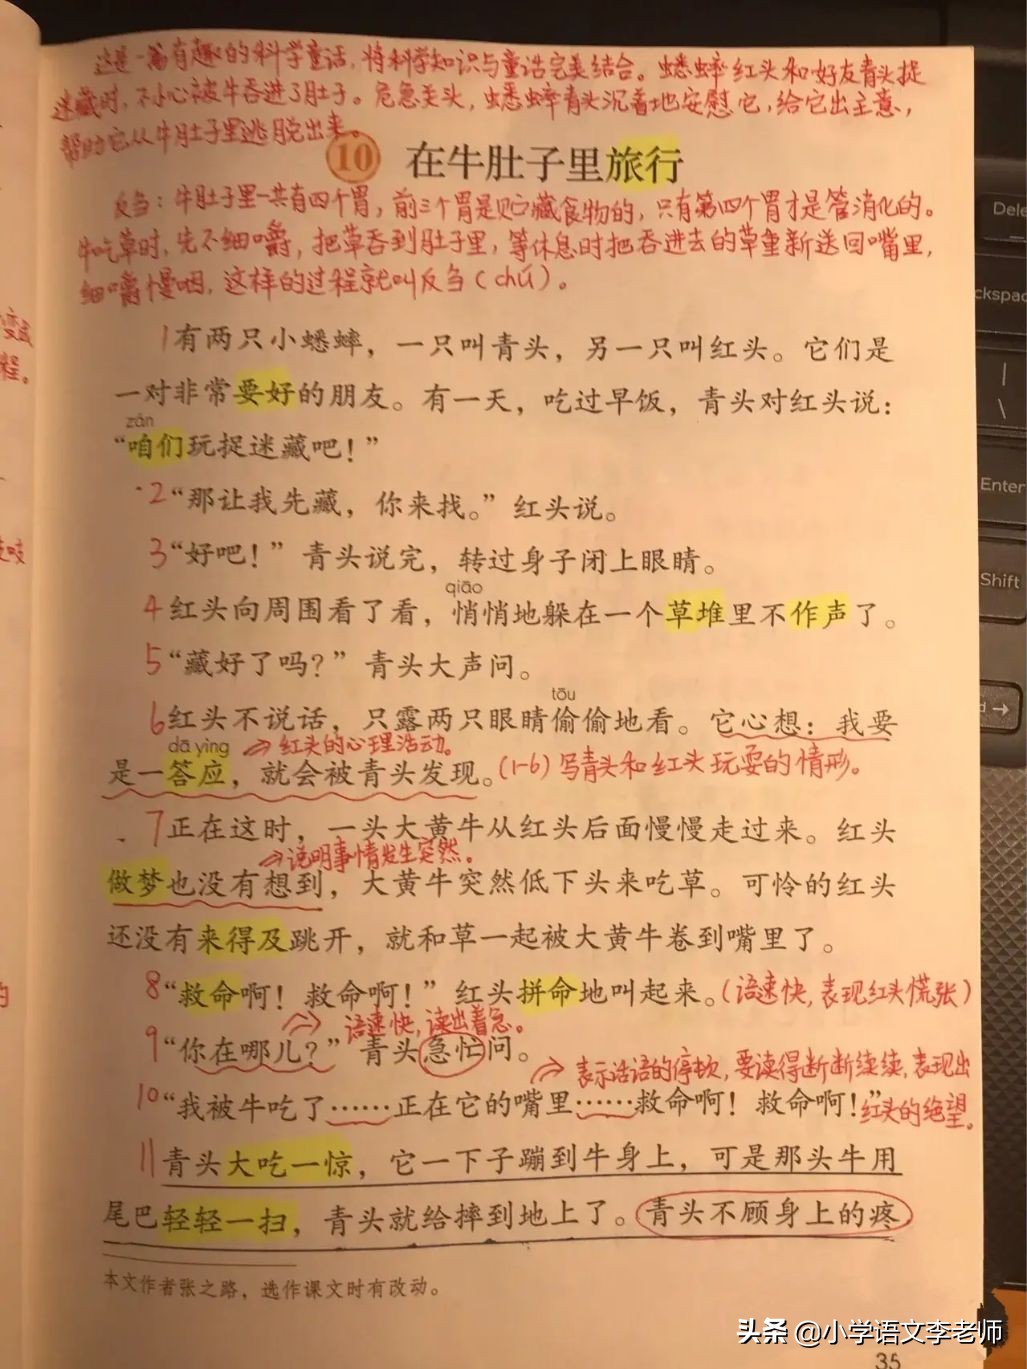 这是一篇有趣的科学童话，将科学知识与童话完美结合。蟋蟀红头和好友青头捉
迷藏时，不小心被牛吞进了肚子。危急关头，蟋蟀青头沉着地安慰它，给它出主意，
帮助它从牛肚子里逃脱出来。
10 在牛肚子里旅行
反刍：牛肚子里一共有四个胃，前三个胃是贮藏食物的，只有第四个胃才是管消化的。
牛吃草时，先不细嚼，把草吞到肚子里，等休息时把吞进去的草重新送回嘴里，
细嚼慢咽，这样的过程就叫反刍（chú）。
1有两只小蟋蟀，一只叫青头，另一只叫红头。它们是
一对非常要好的朋友。有一天，吃过早饭，青头对红头说：
zán
“咱们玩捉迷藏吧！”
2“那让我先藏，你来找。”红头说。
3“好吧！”青头说完，转过身子闭上眼睛。
qiāo
4红头向周围看了看，悄悄地躲在一个草堆里不作声了。
5“藏好了吗？”青头大声问。
tōu
6红头不说话，只露两只眼睛偷偷地看。它心想：我要
dā ying
红头的心理活动。
是一答应，就会被青头发现。(1-6)写青头和红头玩耍的情形。
7正在这时，一头大黄牛从红头后面慢慢走过来。红头
说明事情发生突然。
做梦也没有想到，大黄牛突然低下头来吃草。可怜的红头
还没有来得及跳开，就和草一起被大黄牛卷到嘴里了。
8“救命啊！救命啊！”红头拼命地叫起来。(语速快，表现红头慌张)
语速快，读出着急。
9“你在哪儿？”青头急忙问。
表示话语的停顿，要读得断断续续，表现出
10“我被牛吃了……正在它的嘴里……救命啊！救命啊！”红头的绝望。
11青头大吃一惊，它一下子蹦到牛身上，可是那头牛用
尾巴轻轻一扫，青头就给摔到地上了。青头不顾身上的疼
本文作者张之路，选作课文时有改动。
35
变成
程。
吱
的
Dele
ckspac
|
\
Enter
Shift
d →
头条 @小学语文李老师